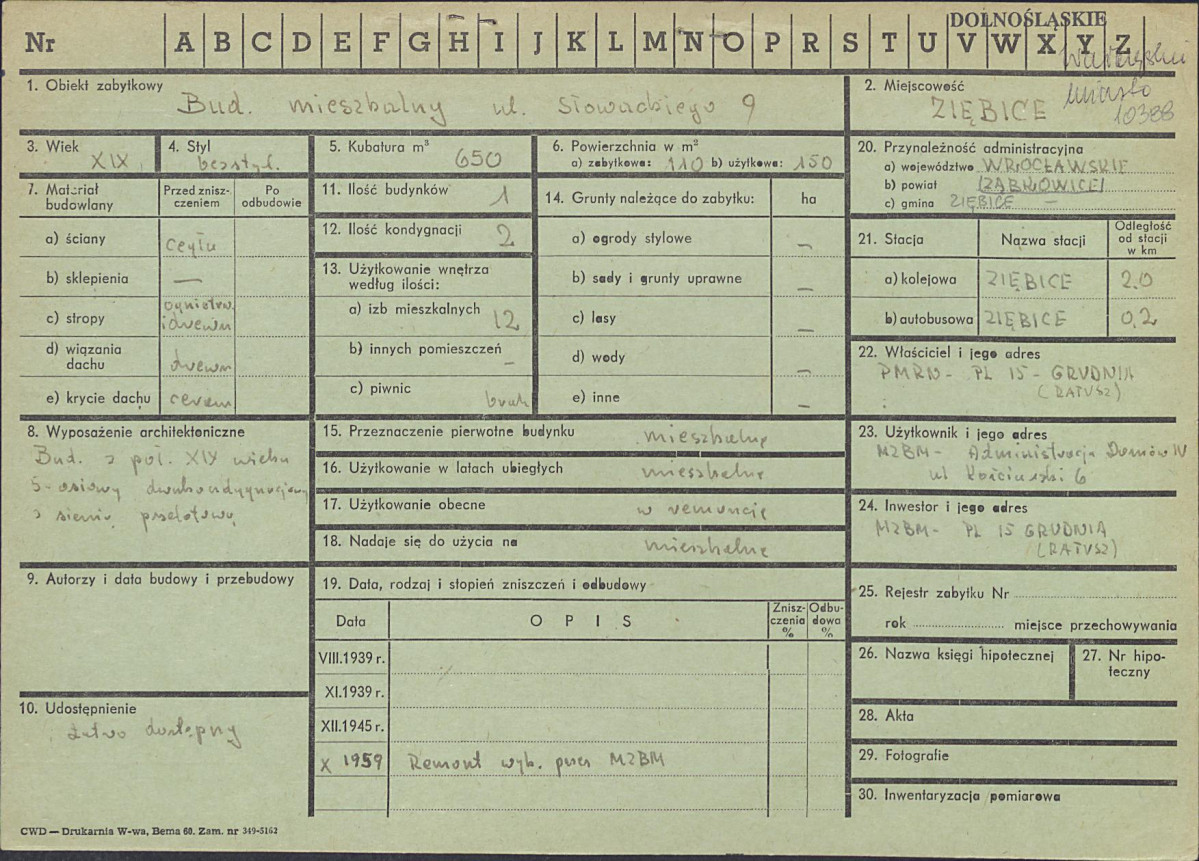 DOLNOŚLĄSKIE
Nr A B C D E F G H I J K L M N O P R S T U V W X Y Z
miasto
10388
1. Obiekt zabytkowy
Bud. mieszkalny ul. Słowackiego 9
2. Miejscowość
ZIĘBICE
3. Wiek
XIX
4. Styl
bezstyl.
5. Kubatura m³
650
6. Powierzchnia w m²
a) zabytkowa: 110 b) użytkowa: 150
7. Materiał budowlany
Przed zniszczeniem
Po odbudowie
a) ściany
cegła
b) sklepienia
—
c) stropy
ogniotrw.
i drewn
d) wiązania dachu
drewn
e) krycie dachu
ceram
8. Wyposażenie architektoniczne
Bud. z poł. XIX wieku
5-osiowy dwukondygnacjowy
z sienią przelotową
9. Autorzy i data budowy i przebudowy
10. Udostępnienie
łatwo dostępny
11. Ilość budynków
1
12. Ilość kondygnacji
2
13. Użytkowanie wnętrza według ilości:
a) izb mieszkalnych
12
b) innych pomieszczeń
–
c) piwnic
brak
14. Grunty należące do zabytku:
ha
a) ogrody stylowe
–
b) sady i grunty uprawne
–
c) lasy
–
d) wody
–
e) inne
–
15. Przeznaczenie pierwotne budynku
mieszkalne
16. Użytkowanie w latach ubiegłych
mieszkalne
17. Użytkowanie obecne
w remoncie
18. Nadaje się do użycia na
mieszkalne
19. Data, rodzaj i stopień zniszczeń i odbudowy
Data
O P I S
Zniszczenia %
Odbudowa %
VIII.1939 r.
XI.1939 r.
XII.1945 r.
X 1959
Remont wyk. przez MZBM
20. Przynależność administracyjna
a) województwo WROCŁAWSKIE
b) powiat ZĄBKOWICE
c) gmina ZIĘBICE —
21. Stacja
Nazwa stacji
Odległość od stacji w km
a) kolejowa
ZIĘBICE
2.0
b) autobusowa
ZIĘBICE
0,2
22. Właściciel i jego adres
PMRN - PL 15 - GRUDNIA
(RATUSZ)
23. Użytkownik i jego adres
MZBM - Administracja Domów IV
ul Kościuszki 6
24. Inwestor i jego adres
MZBM - PL 15 GRUDNIA
(RATUSZ)
25. Rejestr zabytku Nr
rok miejsce przechowywania
26. Nazwa księgi hipotecznej
27. Nr hipoteczny
28. Akta
29. Fotografie
30. Inwentaryzacja pomiarowa
CWD — Drukarnia W-wa, Bema 60. Zam. nr 349-5162